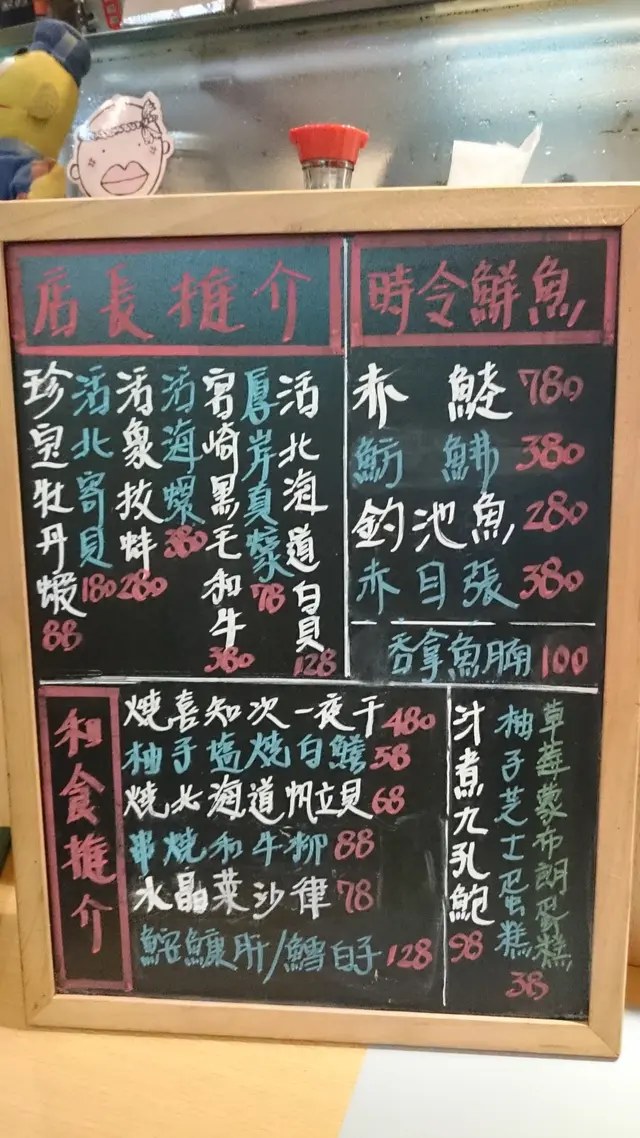 店長推介
活北海道白貝 128
厚岸真蠔 78
宮崎黑毛和牛 380
活海螺 380
活象拔蚌 280
活北寄貝 180
珍宝牡丹蝦 88
時令鮮魚
赤鯥 780
魴鮄 380
釣池魚 280
赤目張 380
吞拿魚腩 100
和食推介
燒喜知次一夜干 480
柚子塩燒白鱔 58
燒北海道帆立貝 68
串燒和牛柳 88
水晶菜沙律 78
鮟鱇肝/鱈白子 128
草莓蒙布朗蛋糕
柚子芝士蛋糕
38
汁煮九孔鮑 98